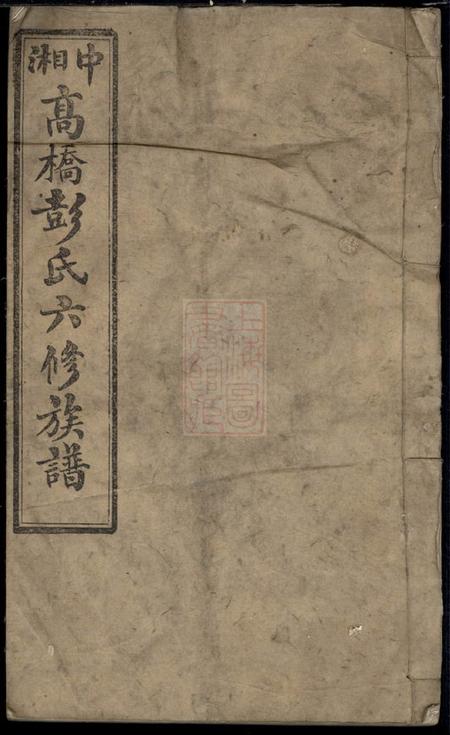 中湘
高橋彭氏六修族譜
上海圖書館藏